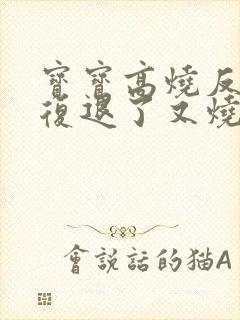 寶寶高燒反
復退了又燒
會說話的猫A